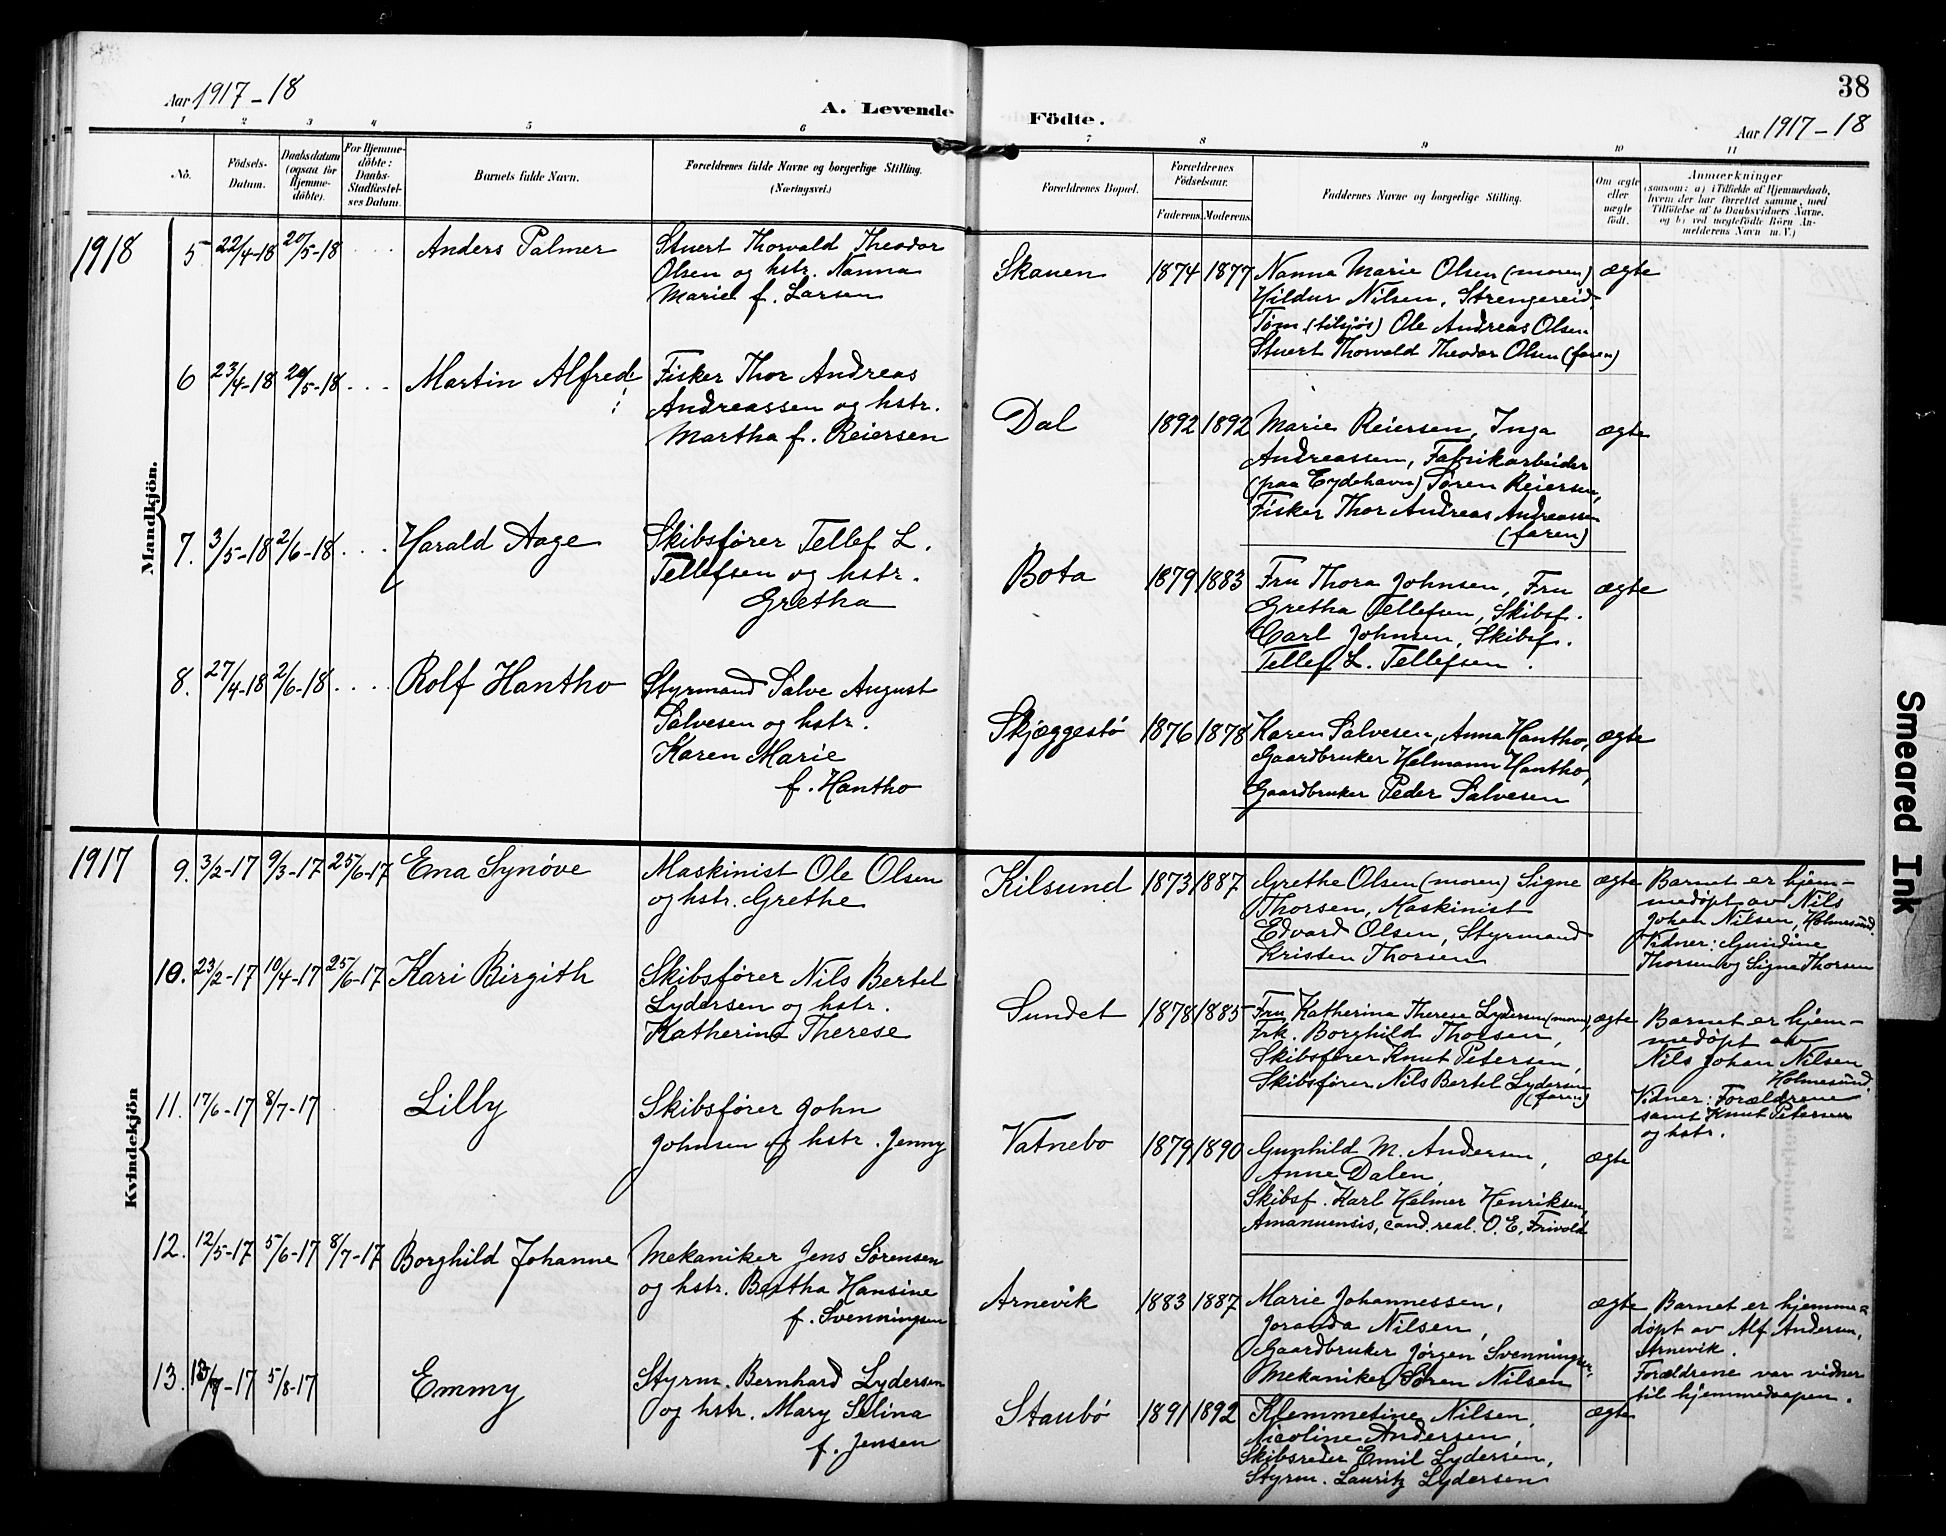 38
Aar 1917-18
A. Levende
Födte.
Aar 1917-18
1 2 3 4 5 6 7 8 9 10 11
No.
Födsels-
Datum.
Daabsdatum
(ogsaa for
Hjemme-
döbte).
For Hjemme-
döbte:
Daabs-
Stadfæstel-
ses Datum.
Barnets fulde Navn.
Forældrenes fulde Navne og borgerlige Stilling.
(Næringsvei.)
Forældrenes Bopæl.
Forældrenes
Födselsaar.
Faderens. Moderens.
Faddernes Navne og borgerlige Stilling.
Om ægte
eller
uægte
födt.
Anmærkninger
(saasom: a) i Tilfælde af Hjemmedaab,
hvem der har forrettet samme, med
Tilföielse af to Daabsvidners Navne,
og b) ved uægtefödte Börn An-
melderens Navn m. V.)
Mandkjön.
1918
5 22/4-18 20/5-18 Anders Palmer
Stuert Thorvald Theodor
Olsen og hstr. Nanna
Marie f. Larsen
Skauen 1874 1877
Nanna Marie Olsen (moren)
Hildur Nilsen, Strengereid
Tøm. (tilsjøs) Ole Andreas Olsen
Stuert Thorvald Theodor Olsen (faren)
ægte
6 23/4-18 20/5-18 Martin Alfred
Fisker Thor Andreas
Andreassen og hstr.
Martha f. Reiersen
Dal 1892 1892
Marie Reiersen, Inga
Andreassen, Fabrikarbeider
(paa Eydehavn) Søren Reiersen,
Fisker Thor Andreas Andreassen
(faren)
ægte
7. 3/5-18 2/6-18 Harald Aage
Skibsfører Tellef L.
Tellefsen og hstr.
Gretha
Bota 1879 1883
Fru Thora Johnsen, Fru
Gretha Tellefsen, Skibsf.
Carl Johnsen, Skibsf.
Tellef L. Tellefsen.
ægte
8. 27/4-18 2/6-18 Rolf Hantho
Styrmand Salve August
Salvesen og hstr.
Karen Marie
f. Hantho
Skjæggestø 1876 1878
Karen Salvesen, Anna Hantho,
Gaardbruker Helmann Hantho,
Gaardbruker Peder Salvesen
ægte
Kvindekjön
1917
9. 3/2-17 9/3-17 25/6-17 Ema Synøve
Maskinist Ole Olsen
og hstr. Grethe
Kilsund 1873 1887
Grethe Olsen (moren) Signe
Thorsen, Maskinist
Edvard Olsen, Styrmand
Kristen Thorsen
ægte
Barnet er hjem-
medøpt av Nils
Johan Nilsen, Holmesund.
Vidner: Gundine
Thorsen og Signe Thorsen
10. 23/2-17 10/4-17 25/6-17 Kari Birgith
Skibsfører Nils Bertel
Lydersen og hstr.
Katherine Therese
Sundet 1878 1885
Fru Katherina Therese Lydersen (moren),
Frk. Borghild Thorsen,
Skibsfører Knut Petersen,
Skibsfører Nils Bertel Lydersen
(faren)
ægte
Barnet er hjem-
medøpt av
Nils Johan Nilsen
Holmesund.
Vidner: Forældrene
samt Knut Petersen
og hstr.
11. 17/6-17 8/7-17 Lilly
Skibsfører John
Johnsen og hstr. Jenny
Vatnebo 1879 1890
Gunhild M. Andersen,
Anne Dalen,
Skibsf. Karl Helmer Henriksen,
Amanuensis, cand. real. O. E. Frivold
ægte
12. 12/5-17 5/6-17 8/7-17 Borghild Johanne
Mekaniker Jens Sørensen
og hstr. Bertha Hansine
f. Svenningsen
Arnevik 1883 1887
Marie Johannessen,
Joranda Nilsen,
Gaardbruker Jørgen Svenningsen
Mekaniker Søren Nilsen
ægte
Barnet er hjemme-
døpt av Alf Andersen,
Arnevik.
Forældrene var vidner
til hjemmedaapen.
13. 5/8-17 Emmy
Styrm. Bernhard Lydersen
og hstr. Mary Selina
f. Jensen
Staubø 1891 1892
Klemmetine Nilsen,
Nicoline Andersen,
Skibsreder Emil Lydersen,
Styrm. Lauritz Lydersen
ægte
Smeared Ink